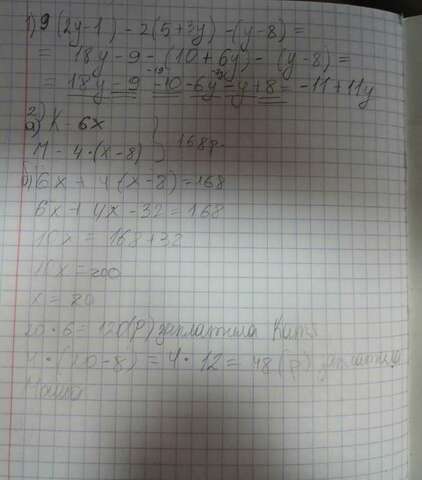 1) 9(2y-1) - 2(5+3y) - (y-8) =
= 18y - 9 - (10+6y) - (y-8) =
= 18y - 9 - 10 - 6y - y + 8 = -11 + 11y
2
а) К - 6x
М - 4·(x-8) } 168р.
б) 6x + 4(x-8) = 168
6x + 4x - 32 = 168
10x = 168 + 32
10x = 200
x = 20
20·6 = 120(р) заплатила Катя
4·(20-8) = 4·12 = 48(р) заплатила
Маша